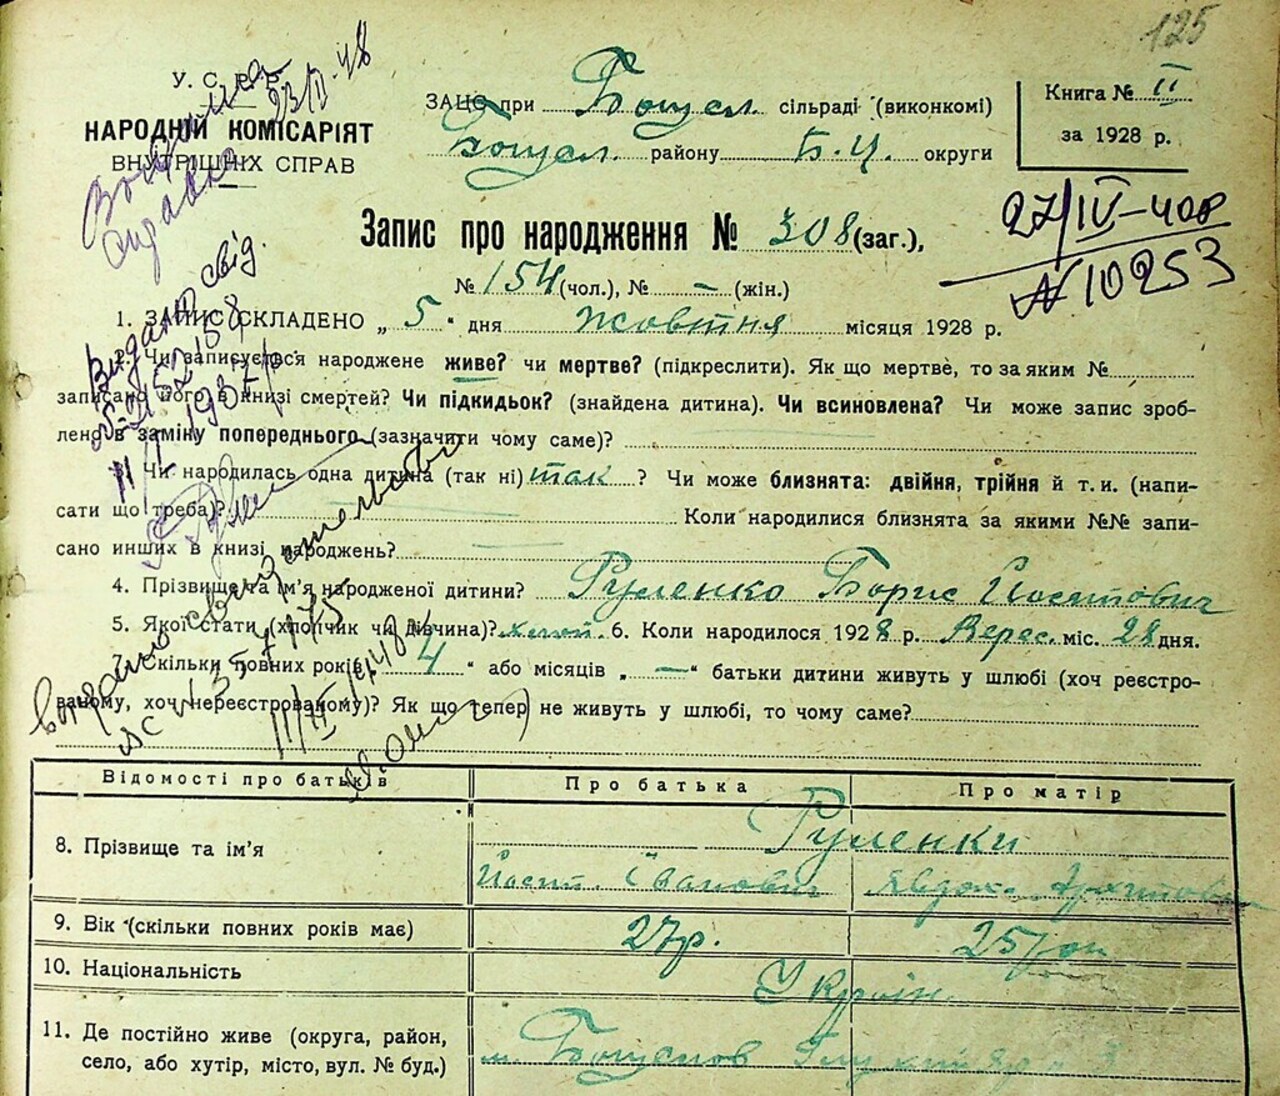 125
У. С. Р. Р.
НАРОДНІЙ КОМІСАРІЯТ
ВНУТРІШНІХ СПРАВ
ЗАЦС при Богусл. сільраді (виконкомі)
Богусл. району Б.-Ц. округи
Книга № II
за 1928 р.
23/II-48
27/IV-40р
N 10253
Запис про народження № 308 (заг.),
№ 154 (чол.), № – (жін.)
1. ЗАПИС СКЛАДЕНО „ 5 " дня жовтня місяця 1928 р.
2. Чи записується народжене живе? чи мертве? (підкреслити). Як що мертве, то за яким №
записано його в книзі смертей? Чи підкидьок? (знайдена дитина). Чи всиновлена? Чи може запис зроб-
лено в заміну попереднього (зазначити чому саме)?
3. Чи народилась одна дитина (так ні) так ? Чи може близнята: двійня, трійня й т. и. (напи-
сати що треба)? Коли народилися близнята за якими №№ запи-
сано инших в книзі народжень?
4. Прізвище та ім'я народженої дитини? Руленко Борис Йосипович
5. Якої стати (хлопчик чи дівчина)? хлоп. 6. Коли народилося 1928 р. Верес. міс. 28 дня.
7. Скільки повних років 4 " або місяців „ — " батьки дитини живуть у шлюбі (хоч реєстро-
ваному, хоч нереєстрованому)? Як що тепер не живуть у шлюбі, то чому саме?
Видано свід.
видано свидетельство
Відомості про батьків Про батька Про матір
8. Прізвище та ім'я Руленки
Йосип Іванович Явдох. Архипов
9. Вік (скільки повних років має) 27р. 25
10. Національність Україн.
11. Де постійно живе (округа, район,
село, або хутір, місто, вул. № буд.) м. Богуслав